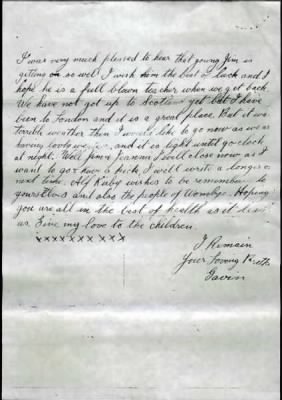 I was very much pleased to hear that young Jim is
getting on so well I wish him the best of luck and I
hope he is a full blown teacher when we get back.
We have not got up to Scotland yet but I have
been to London and it is a great place. But it was
terrible weather then I would like to go now as we are
having lovely and it is light until 9 o clock
at night. Well Jim & Jeannie I will close now as I
want to go & have a kick I will write a longer one
next time. Alf Raby wishes to be remember to
yourselves and also the people of Hoping
you are all in the best of health as it leaves
us. Give my love to the children
x x x x x x x x x x
I Remain
Your Loving Broth
Gavin